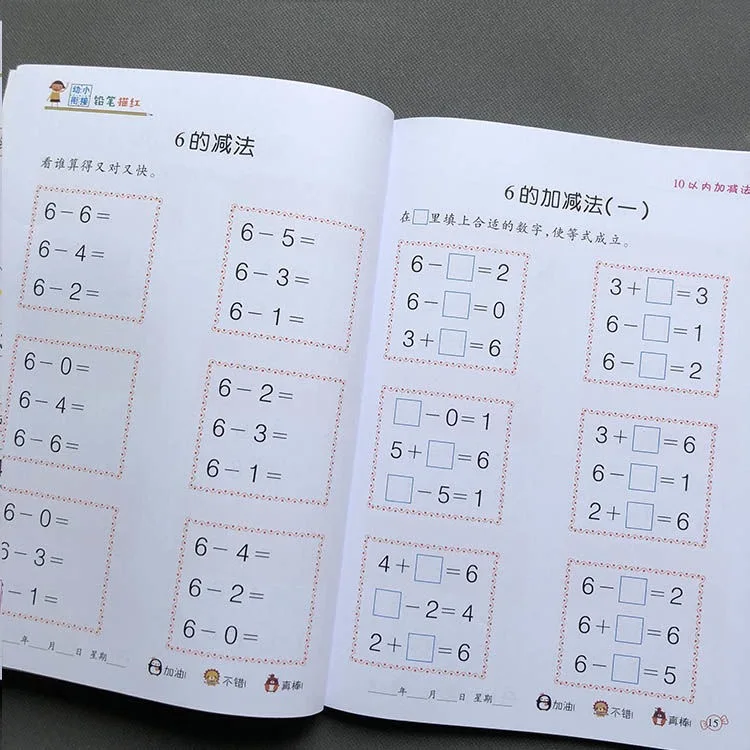 幼小
衔接
铅笔描红
6的减法
看谁算得又对又快。
6-6=
6-4=
6-2=
6-5=
6-3=
6-1=
6-0=
6-4=
6-6=
6-2=
6-3=
6-1=
6-0=
6-3=
-1=
6-4=
6-2=
6-0=
____年____月____日 星期____
加油!
不错!
真棒!
10以内加减法
6的加减法(一)
在□里填上合适的数字,使等式成立。
6-□=2
6-□=0
3+□=6
3+□=3
6-□=1
6-□=2
□-0=1
5+□=6
□-5=1
3+□=6
6-□=1
2+□=6
4+□=6
□-2=4
2+□=6
6-□=2
6+□=6
6-□=5
____年____月____日 星期____
加油!
不错!
真棒!
15